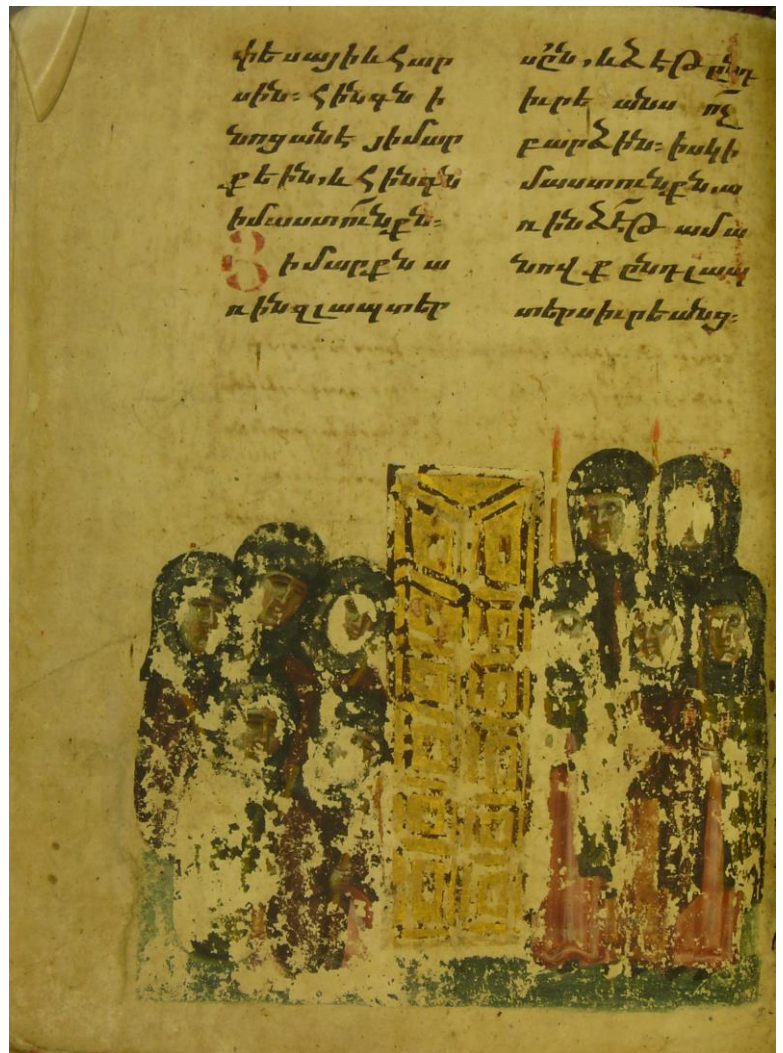 փեսայի և հար
սին։ հինգն ի
նոցանէ յիմար
ք եին, և հինգն
իմաստունքն։
Յիմարքն ա
ռին զլապտեր
սըն, և ձեթ ընդ
իւրեանս ոչ
բարձին։ իսկ ի
մաստունքն, ա
ռին ձեթ ամա
նովք ընդ լապ
տերս իւրեանց։